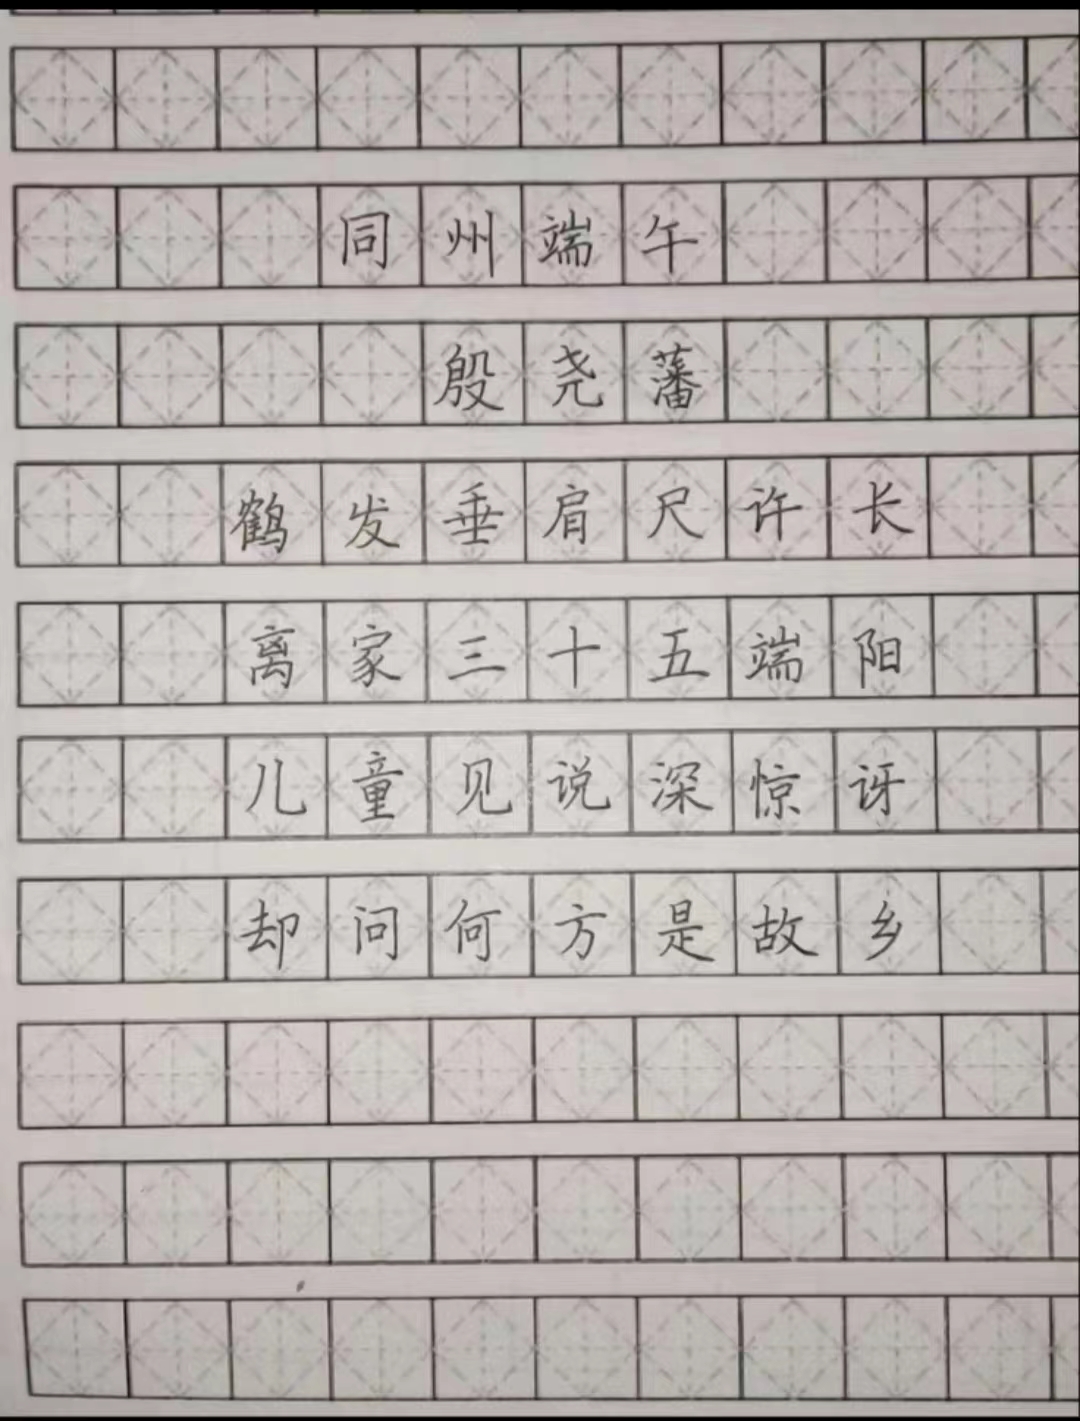 同州端午
殷尧藩
鹤发垂肩尺许长
离家三十五端阳
儿童见说深惊讶
却问何方是故乡